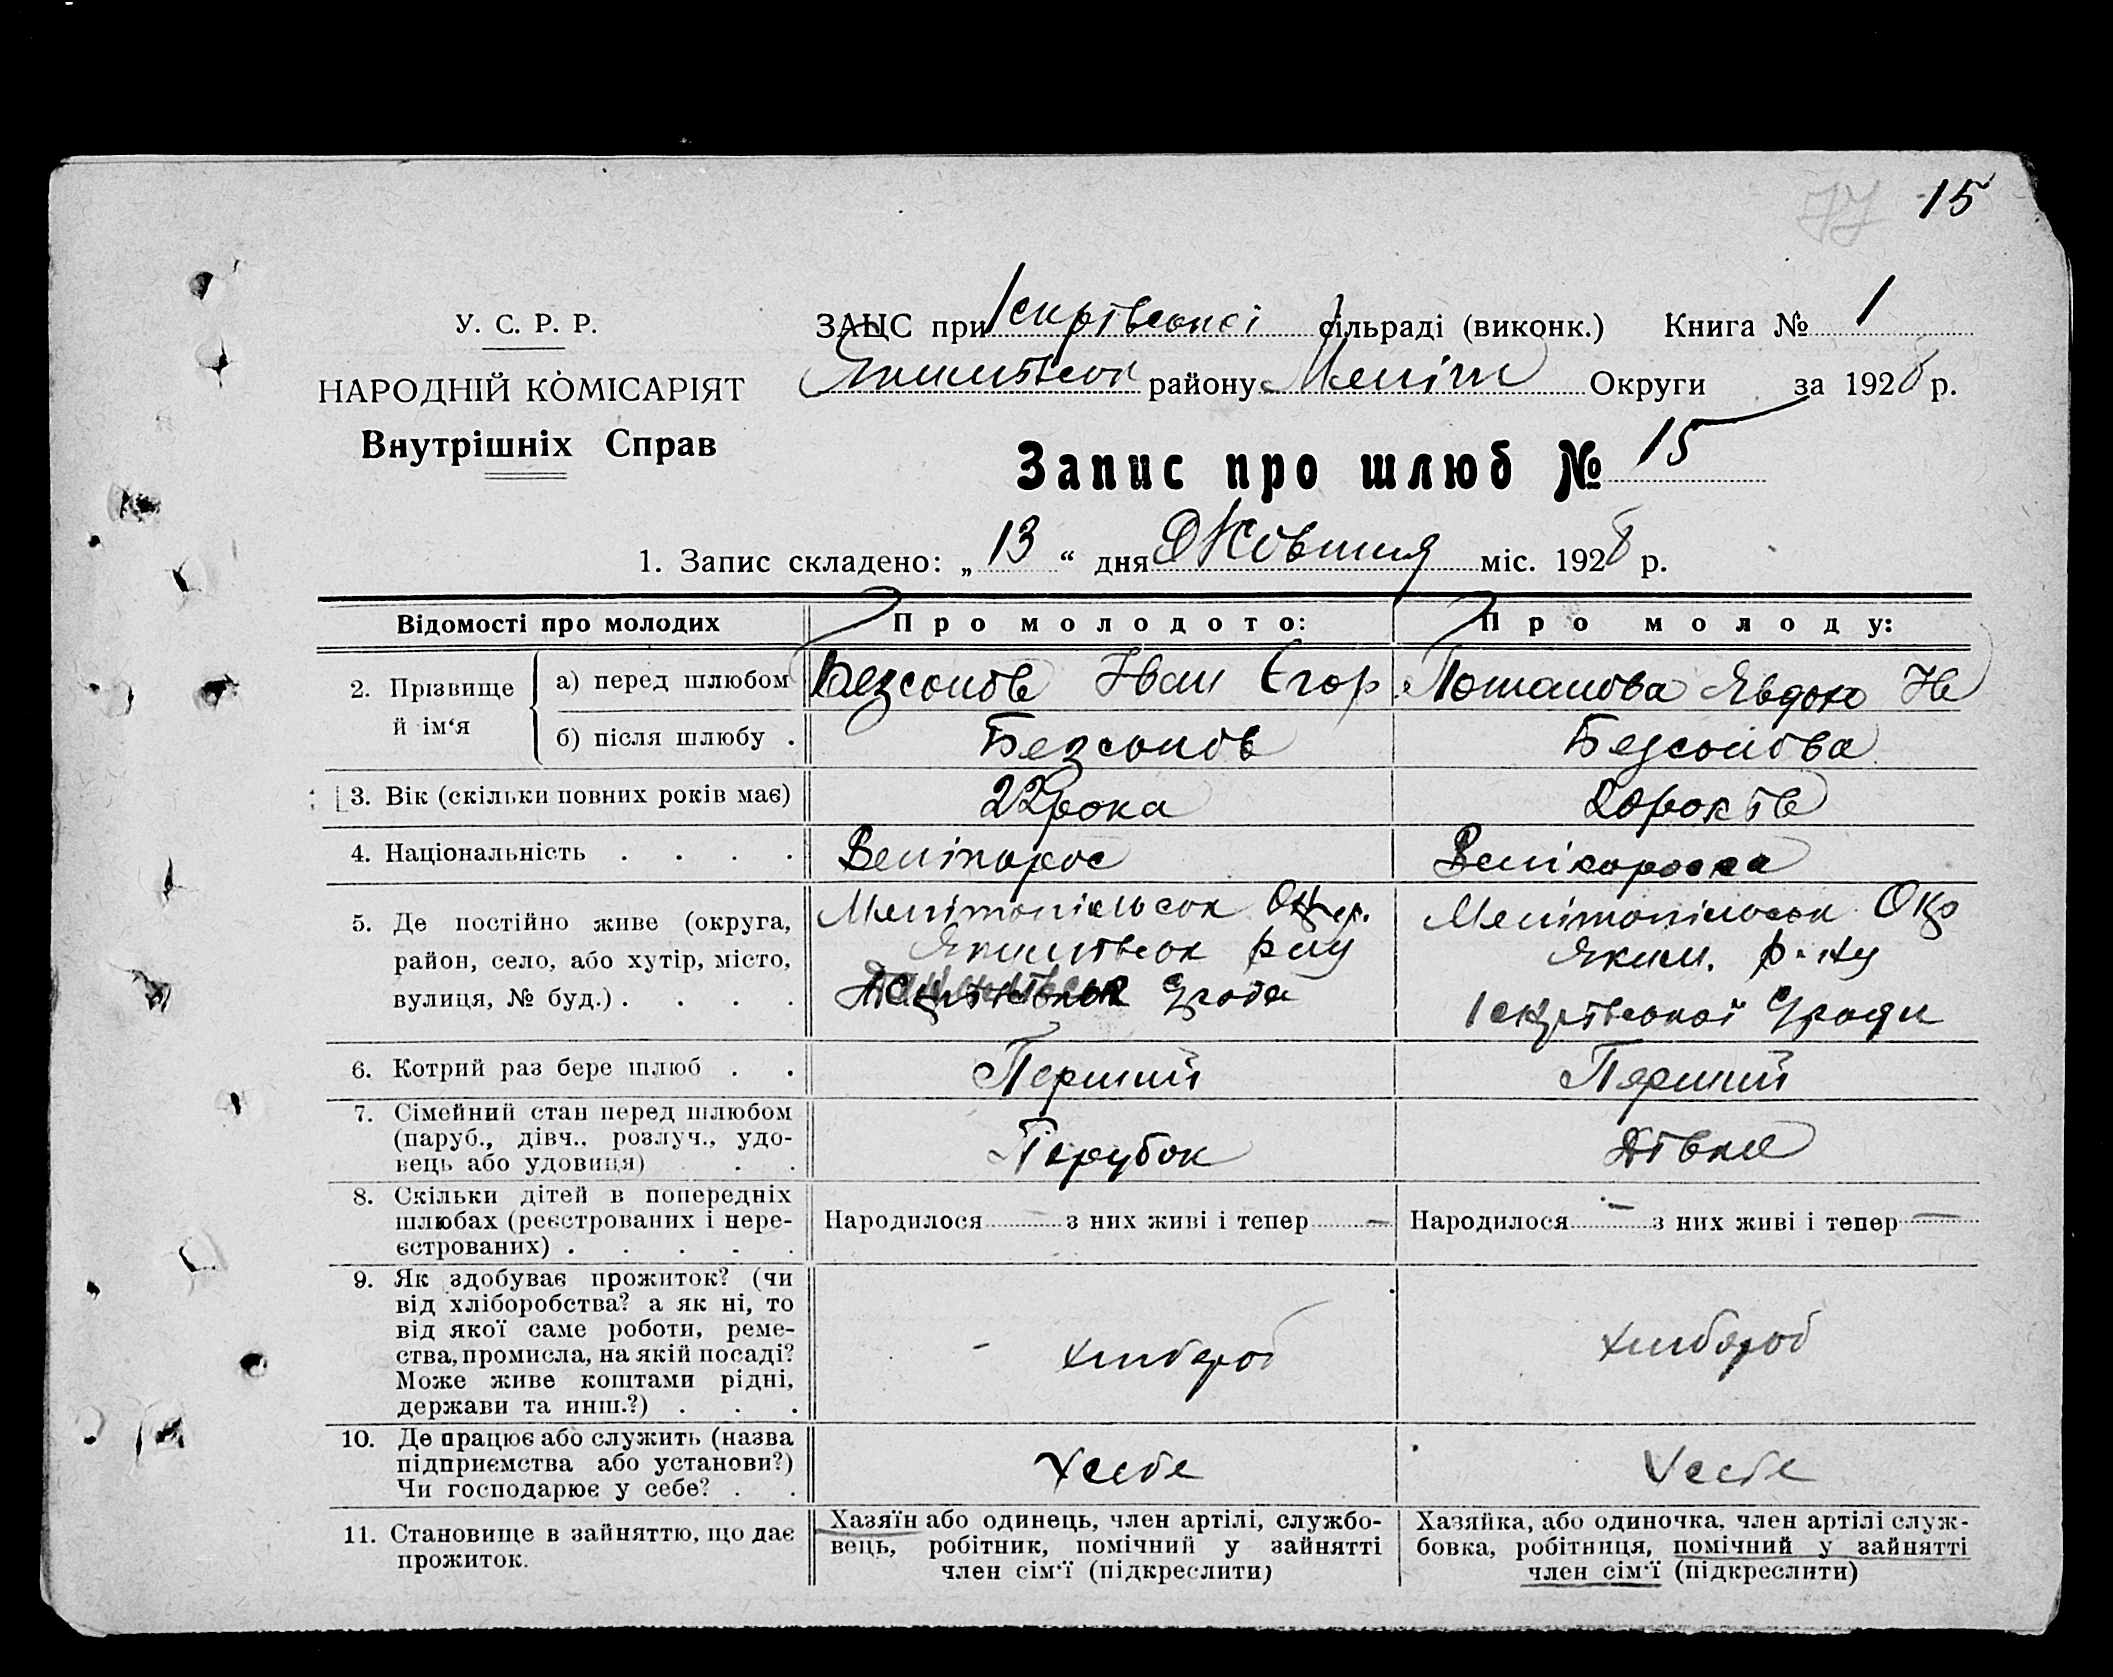 77 15
У. С. Р. Р.
ЗАЦС при Іскрівської сільраді (виконк.) Книга № 1
НАРОДНІЙ КОМІСАРІЯТ
Якимівськ району Меліт Округи за 1928 р.
Внутрішніх Справ
Запис про шлюб № 15
1. Запис складено: „ 13 “ дня Жовтня міс. 1928 р.
Відомості про молодих
Про молодого:
Про молоду:
2. Прізвище й ім‘я
а) перед шлюбом
Безсонов Іван Єгор.
Потапова Явдок Ів
б) після шлюбу .
Безсонов
Безсонова
3. Вік (скільки повних років має)
22 рока
20 років
4. Національність . . . .
Велікорос
Велікороска
5. Де постійно живе (округа,
район, село, або хутір, місто,
вулиця, № буд.) . . . .
Мелітопільськ Окр.
Якимівськ р-ну
с/ради
Мелітопільськ Окр
Яким. р-ну
Іскрівської с/ради
6. Котрий раз бере шлюб . .
Перший
Перший
7. Сімейний стан перед шлюбом
(паруб., дівч., розлуч., удо-
вець або удовиця) . .
Парубок
Дівка
8. Скільки дітей в попередніх
шлюбах (реєстрованих і нере-
єстрованих) . . . . .
Народилося — з них живі і тепер —
Народилося — з них живі і тепер —
9. Як здобуває прожиток? (чи
від хліборобства? а як ні, то
від якої саме роботи, реме-
ства, промисла, на якій посаді?
Може живе коштами рідні,
держави та инш.?) . . .
- хлибороб
хлибороб
10. Де працює або служить (назва
підприємства або установи?)
Чи господарює у себе? . .
У себе
У себе
11. Становище в зайняттю, що дає
прожиток.
Хазяїн або одинець, член артілі, службо-
вець, робітник, помічний у зайнятті
член сім‘ї (підкреслити)
Хазяйка, або одиночка, член артілі служ-
бовка, робітниця, помічний у зайнятті
член сім‘ї (підкреслити)